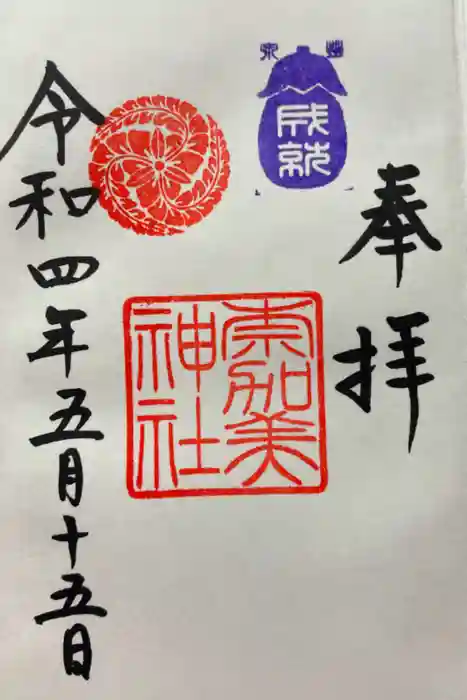 奉拝
成就
奈加美
神社
令和四年五月十五日